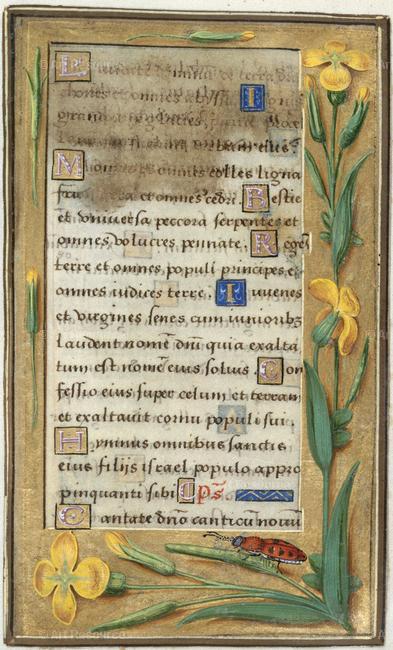 L de terra dra
et omnes abyssi. Ignis
grando
verbum eius.
M omnes colles ligna
et omnes cedri. Bestie
et vniversa peccora serpentes et
omnes volucres pennate. Reges
terre et omnes populi principes et
omnes iudices terre. Iuuenes
et virgines senes cum iunioribꝫ
laudent nomē dn̄i quia exalta
tum est nomē eius solius. Con
fessio eius super celum et terram
et exaltauit cornu populi sui.
Hymnus omnibus sanctis
eius filijs israel populo appro
pinquanti sibi. ps̄
Cantate dn̄o canticū nouū